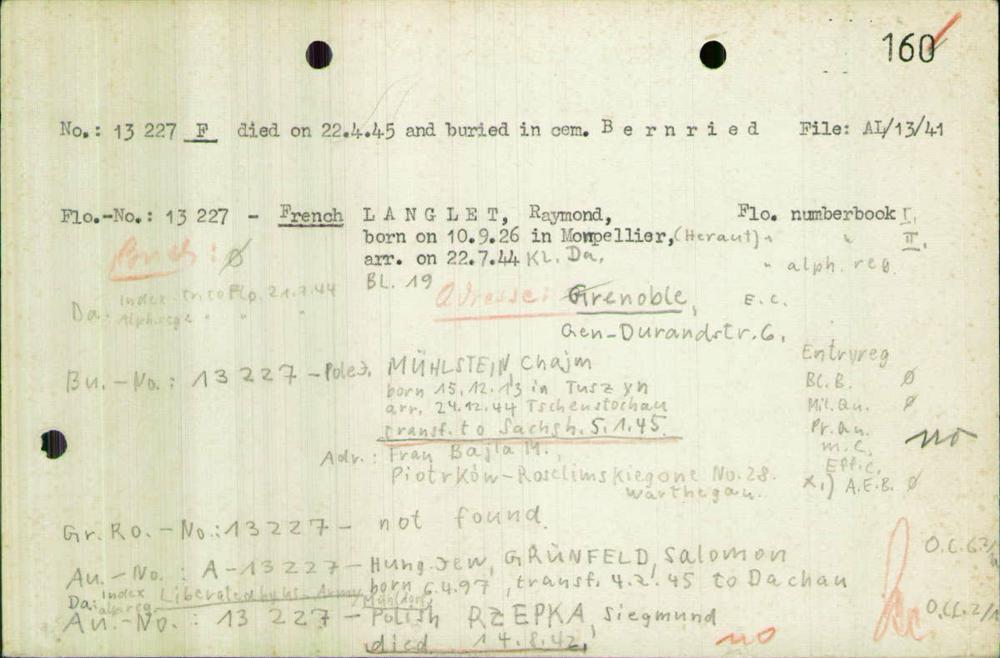 160
No.: 13 227 F died on 22.4.45 and buried in cem. B e r n r i e d File: AL/13/41
Flo.-No.: 13 227 - French L A N G L E T, Raymond, Flo. numberbook I.
born on 10.9.26 in Monpellier, (Heraut) " " II.
arr. on 22.7.44 KL. Da. " alph. reg.
BL. 19
Da. Index. trsto Flo. 21.7.44
Adresse: Grenoble, E.C.
Gen-Durandstr. 6.
Bu.-No.: 13227 - Pole J. MÜHLSTEIN, Chajm
born 15.12.13 in Tuszyn
arr. 24.12.44 Tschenstochau
transf. to Sachsh. 5.1.45.
Adr.: Frau Bajla M.,
Piotrków-Rosclimskiegone No. 28.
Warthegau.
Entryreg
BC.B. Ø
Mil.Qu. Ø
Pr.Qu.
M.C. no
Effic.
x.) A.E.B. Ø
Gr. Ro. - No.: 13227 - not found.
Au. - No. : A-13227 - Hung. Jew, GRÜNFELD, Salomon
born 6.4.97, transf. 4.2.45 to Dachau
Da: index Liberated by US-Army Mühldorf
Au. - No. : 13 227 - Polish RZEPKA, Siegmund
died 14.8.42.
no